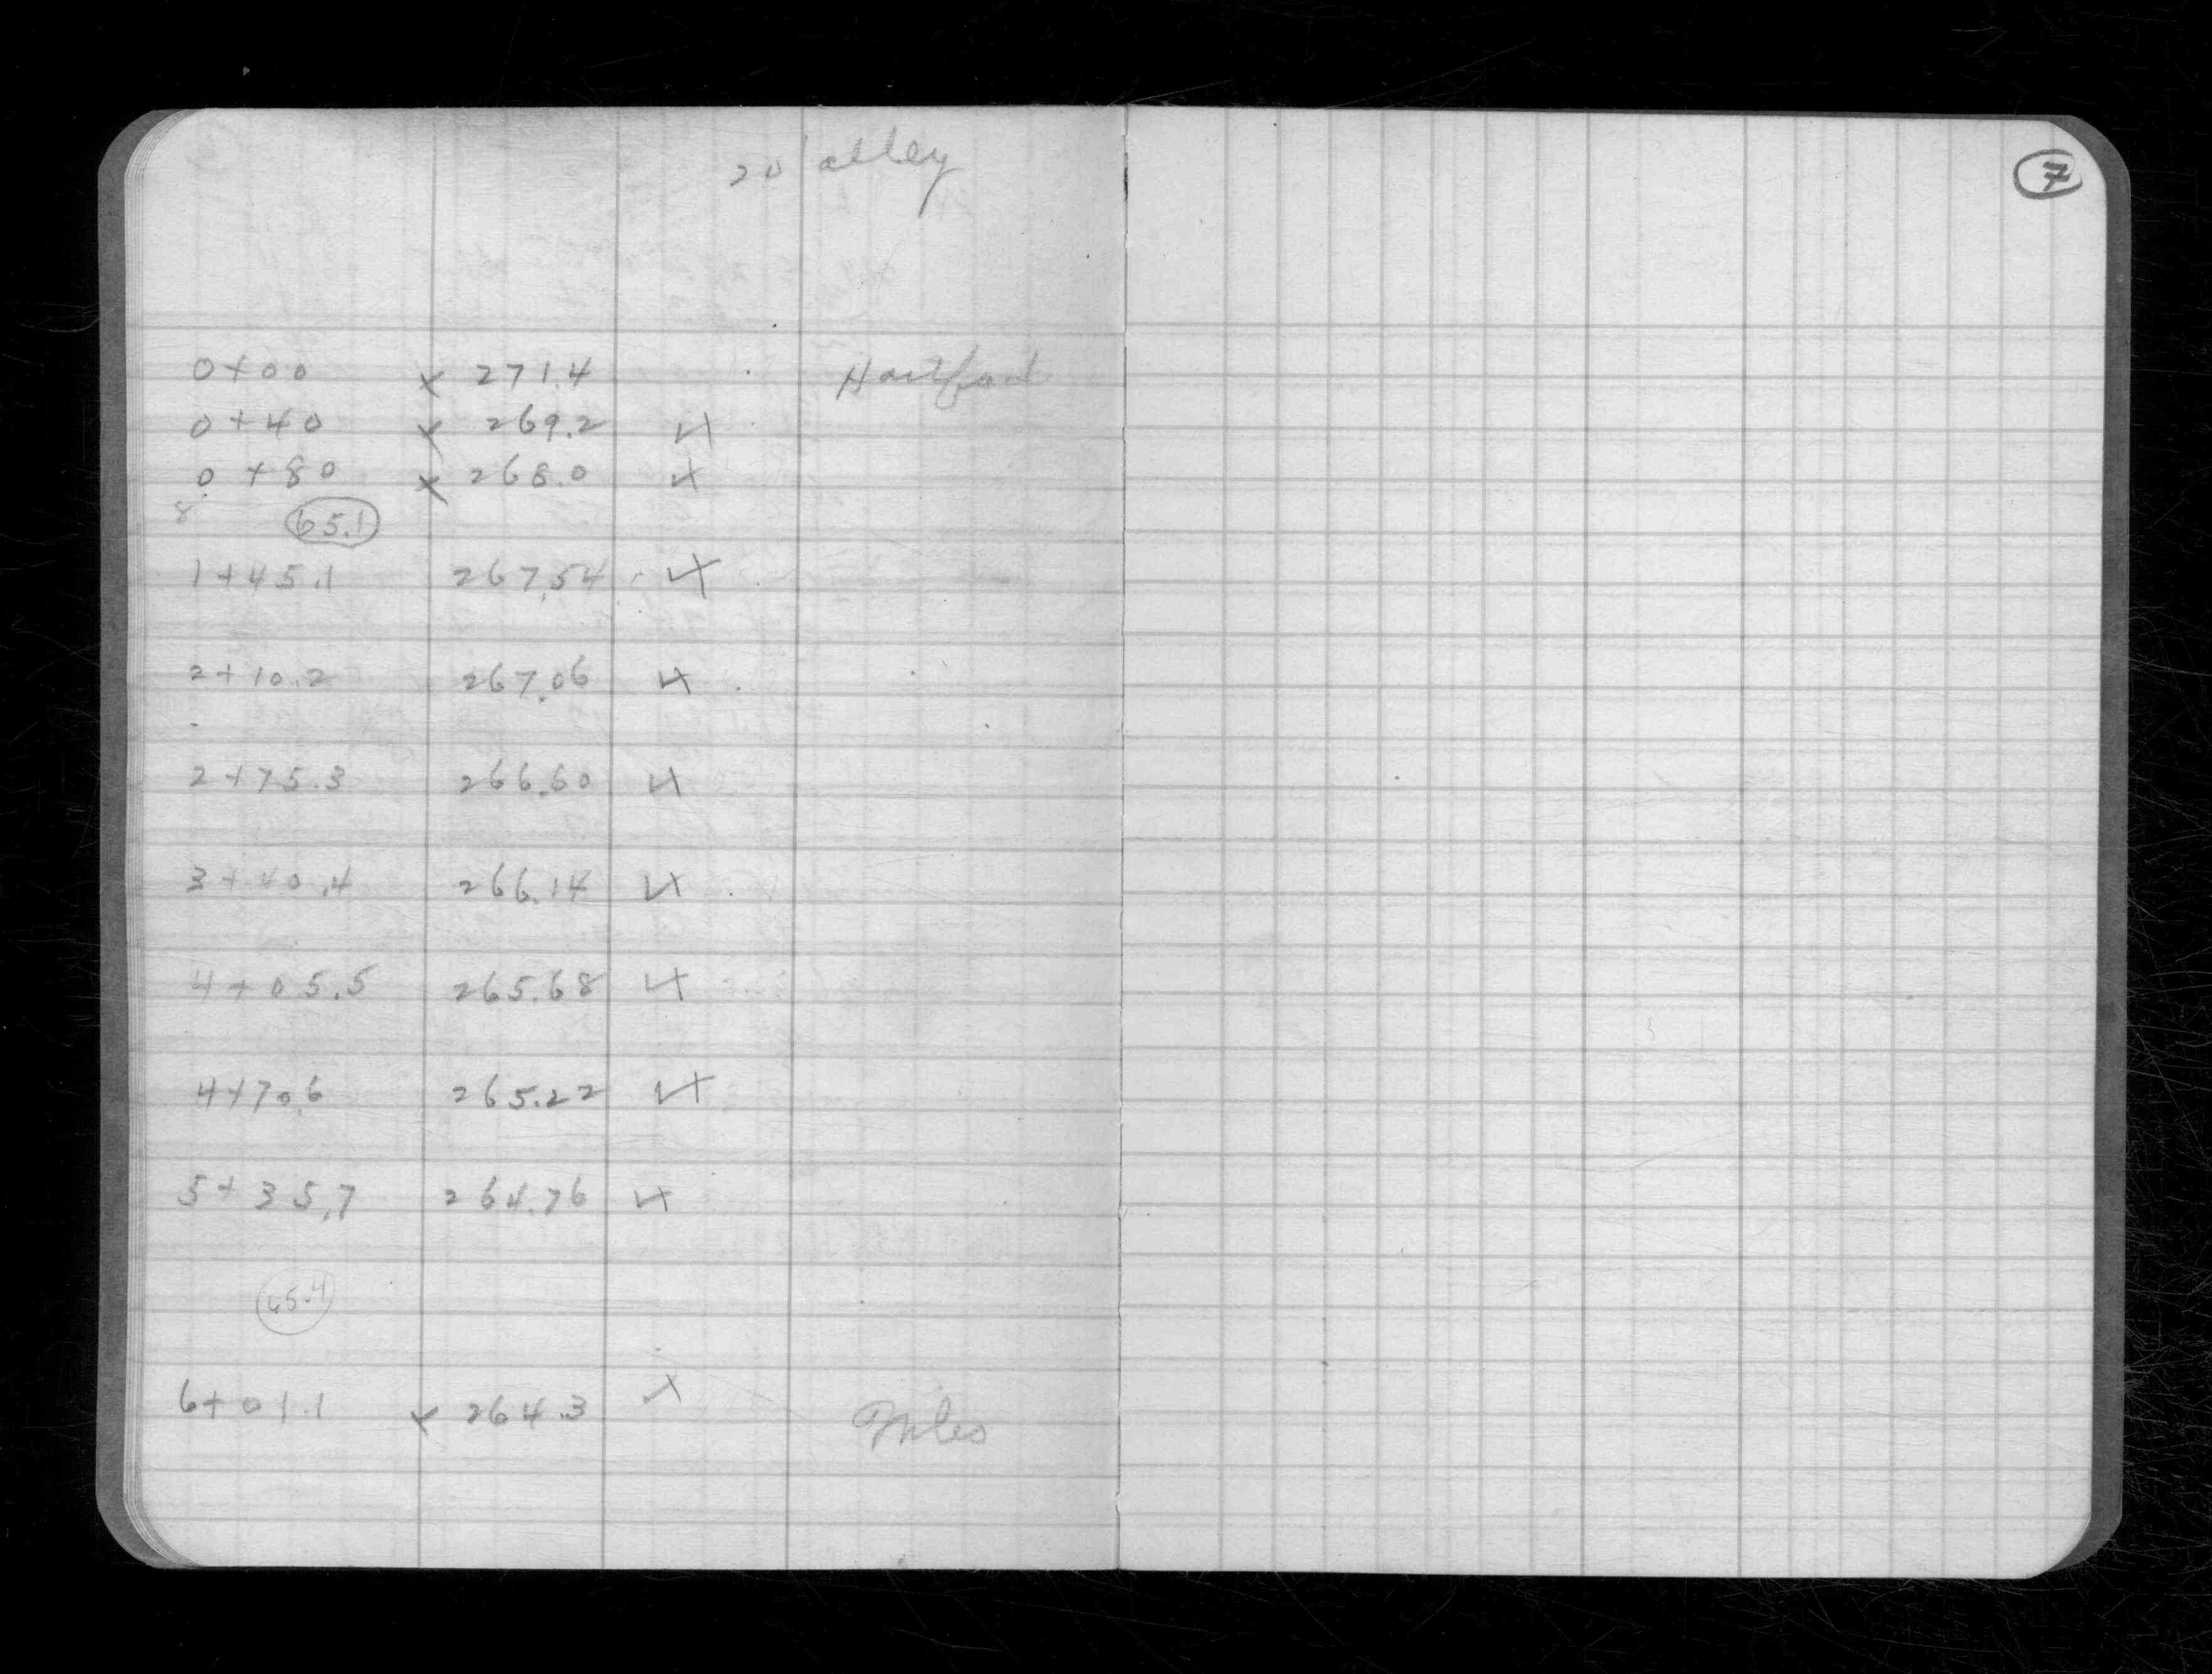 20 alley
7
0+00 x 271.4 Hartford
0+40 x 269.2
0+80 x 268.0
8 65.1
1+45.1 267.54
2+10.2 267.06
2+75.3 266.60
3+40.4 266.14
4+05.5 265.68
4+70.6 265.22
5+35.7 264.76
65.4
6+01.1 x 264.3 Niles